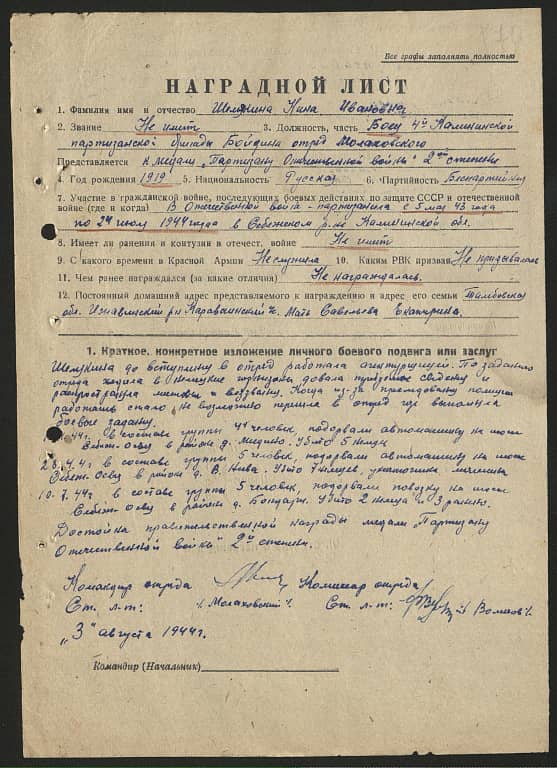 Все графы заполнять полностью
НАГРАДНОЙ ЛИСТ
1. Фамилия имя и отчество Шемякина Нина Ивановна
2. Звание Не имеет 3. Должность, часть Боец 4й Калининской
партизанской бригады Бойдина отряд Молаховского
Представляется к медали „Партизану Отечественной войны" 2ой степени
4. Год рождения 1919 5. Национальность Русская 6. Партийность Безпартийная
7. Участие в гражданской войне, последующих боевых действиях по защите СССР и отечественной
войне (где и когда) В Отечественной войне - партизанка с 5 мая 43 года
по 24 июля 1944 года в Себежском р-не Калининской обл.
8. Имеет ли ранения и контузии в отечест. войне Не имеет
9. С какого времени в Красной Армии Не служила 10. Каким РВК призван Не призывалась
11. Чем ранее награждался (за какие отличия) Не награждалась.
12. Постоянный домашний адрес представляемого к награждению и адрес его семьи Тамбовская
обл. р-н Мать Савельева Екатерина.
1. Краткое, конкретное изложение личного боевого подвига или заслуг
до вступления в отряд работала По заданию
отряда ходила в немецкие гарнизоны и
распространяла листовки и Когда из-за
работать стало не возможно перешла в отряд где выполняла
боевые задания.
44г. в составе группы 4 человек, подорвали автомашину на шоссе
Себеж-Освея в районе д. Убито 5 немцев
4г. в составе группы 5 человек, подорвали автомашину на шоссе
Себеж-Освея в районе д. Нива. Убито 7 немцев, уничтожена
10.7.44г. в составе группы 5 человек, подорвали повозку на шоссе
Себеж-Освея в районе д. Бондари. Убито 2 немца и 3 ранено.
Достойна правительственной награды медали „Партизану
Отечественной войны" 2ой степени.
Командир отряда Комиссар отряда
Ст. л-т: /Молаховский/ Ст. л-т:
„3" августа 1944г.
Командир (Начальник)